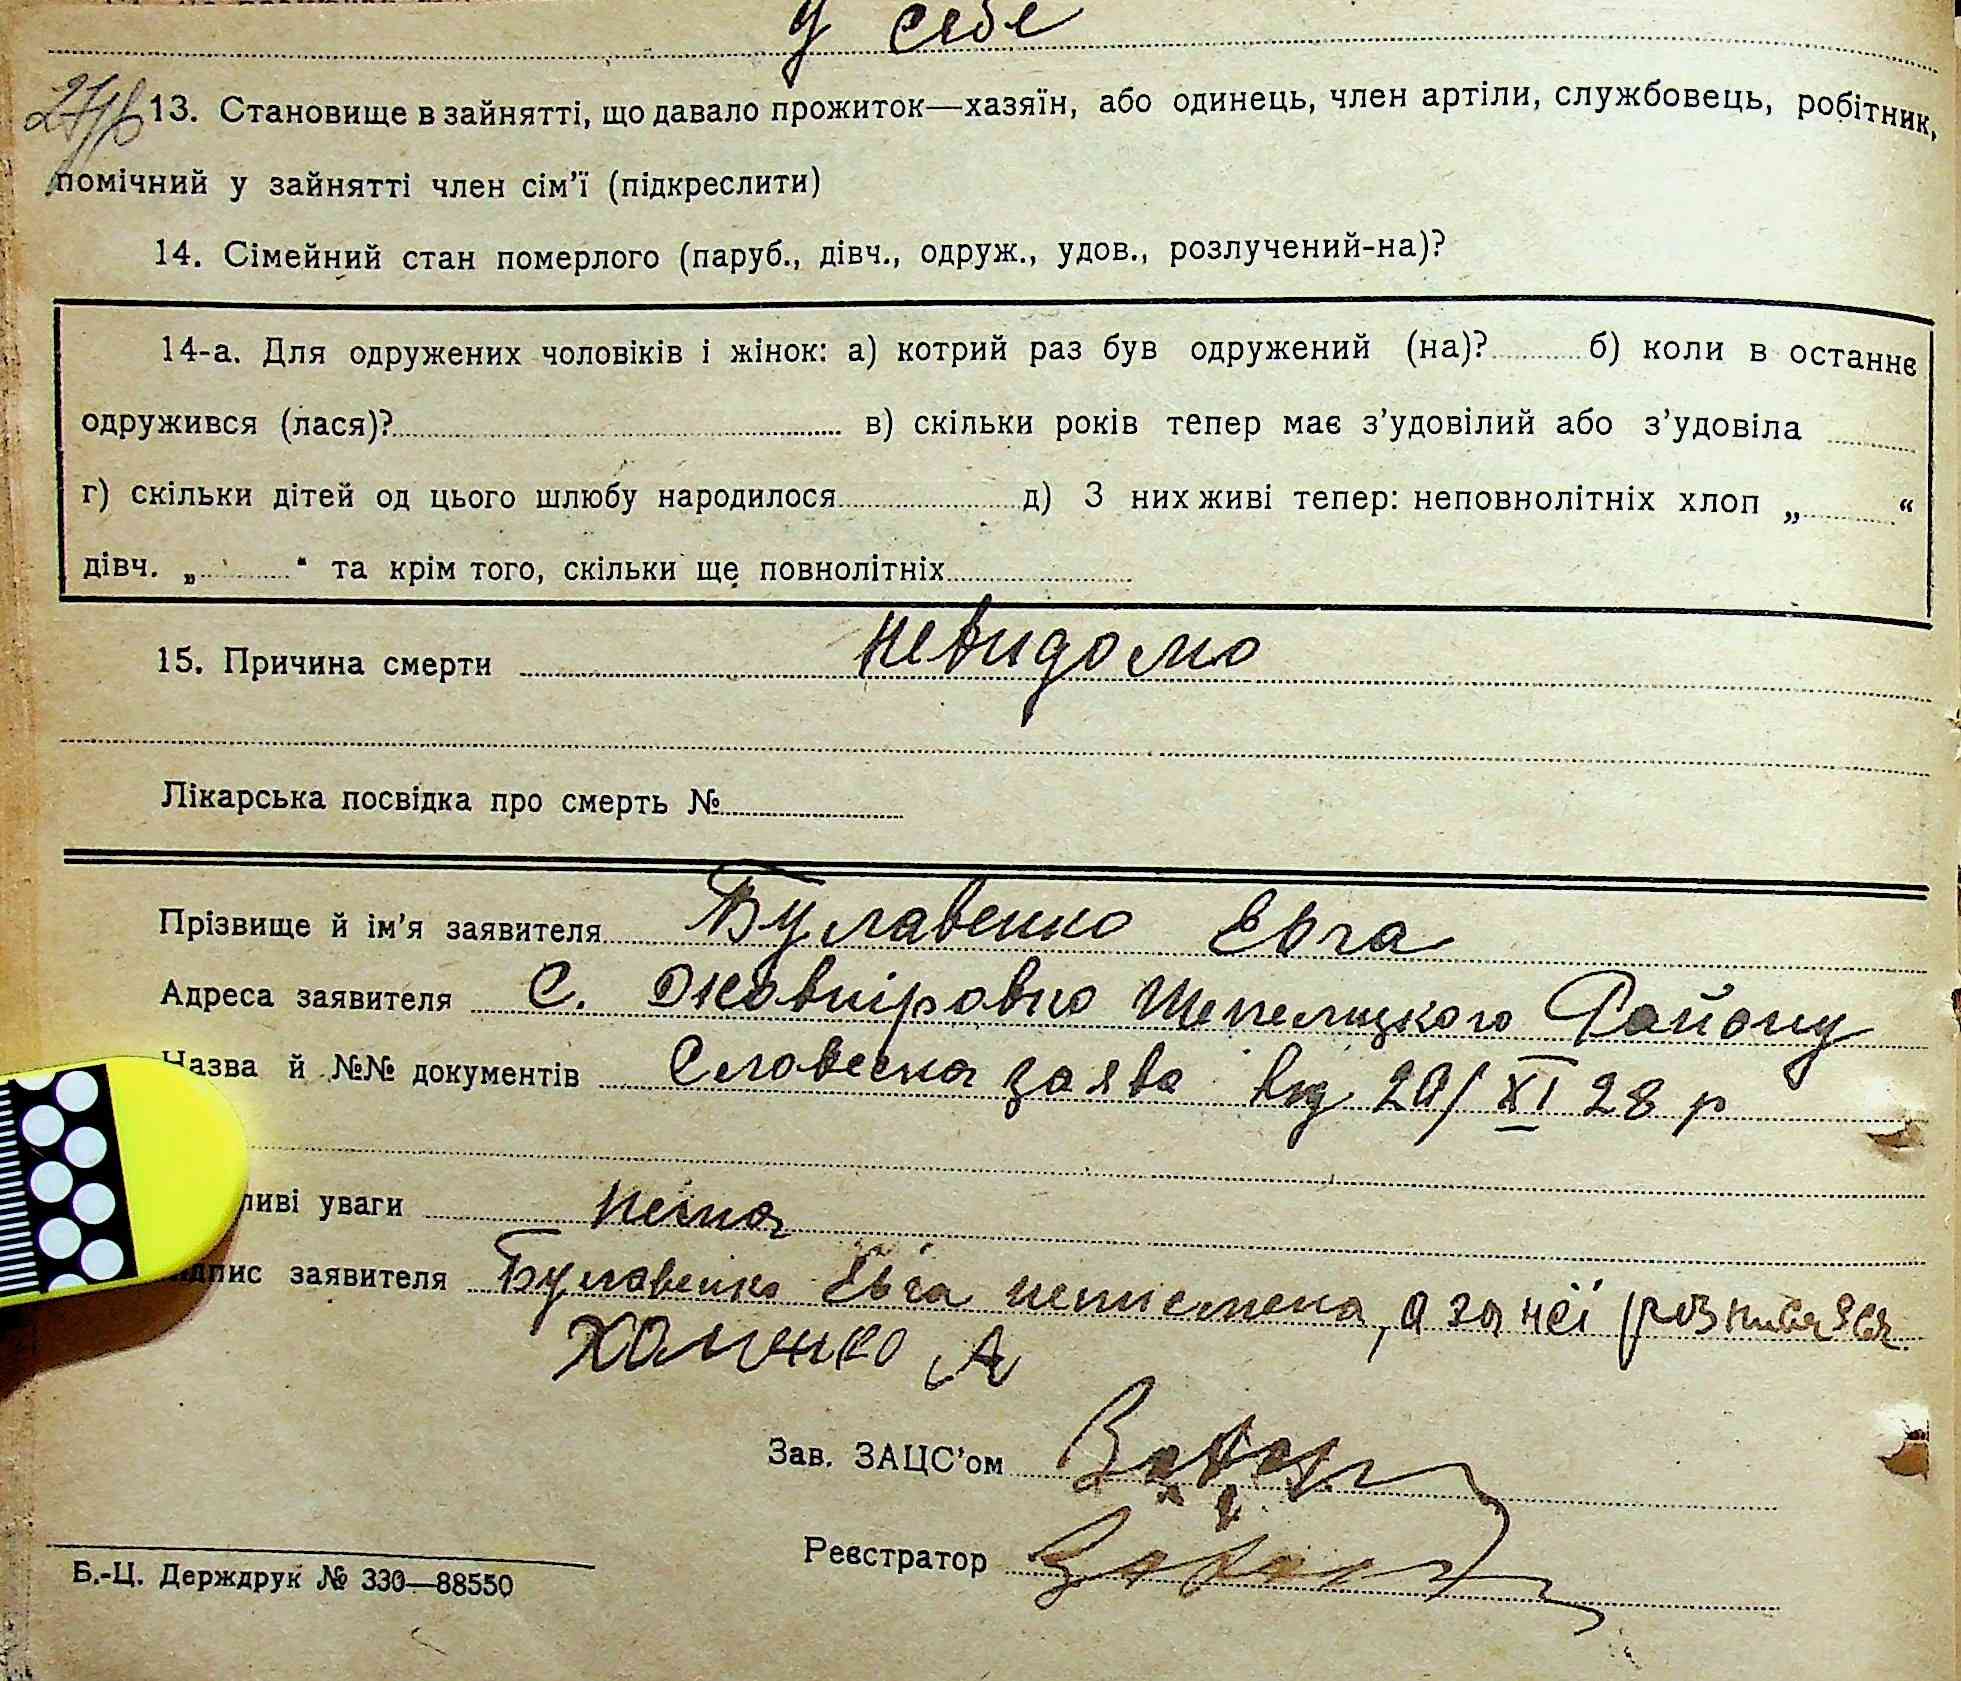 у себе
13. Становище в зайнятті, що давало прожиток—хазяїн, або одинець, член артіли, службовець, робітник,
помічний у зайнятті член сім'ї (підкреслити)
14. Сімейний стан померлого (паруб., дівч., одруж., удов., розлучений-на)?
14-а. Для одружених чоловіків і жінок: а) котрий раз був одружений (на)? б) коли в останнє
одружився (лася)? в) скільки років тепер має з'удовілий або з'удовіла
г) скільки дітей од цього шлюбу народилося д) З них живі тепер: неповнолітніх хлоп „ “
дівч. „ “ та крім того, скільки ще повнолітніх
15. Причина смерти невидомо
Лікарська посвідка про смерть №
Прізвище й ім'я заявителя Булавенко Евга
Адреса заявителя С. Жовніровка Шепелицкого Району
Назва й №№ документів Словесна заява вид 20/XI 28 р
ливі уваги нема
дпис заявителя Булавенко Евга неписмена, а за неї розписався
Хоменко А
Зав. ЗАЦС'ом
Реєстратор
Б.-Ц. Держдрук № 330—88550